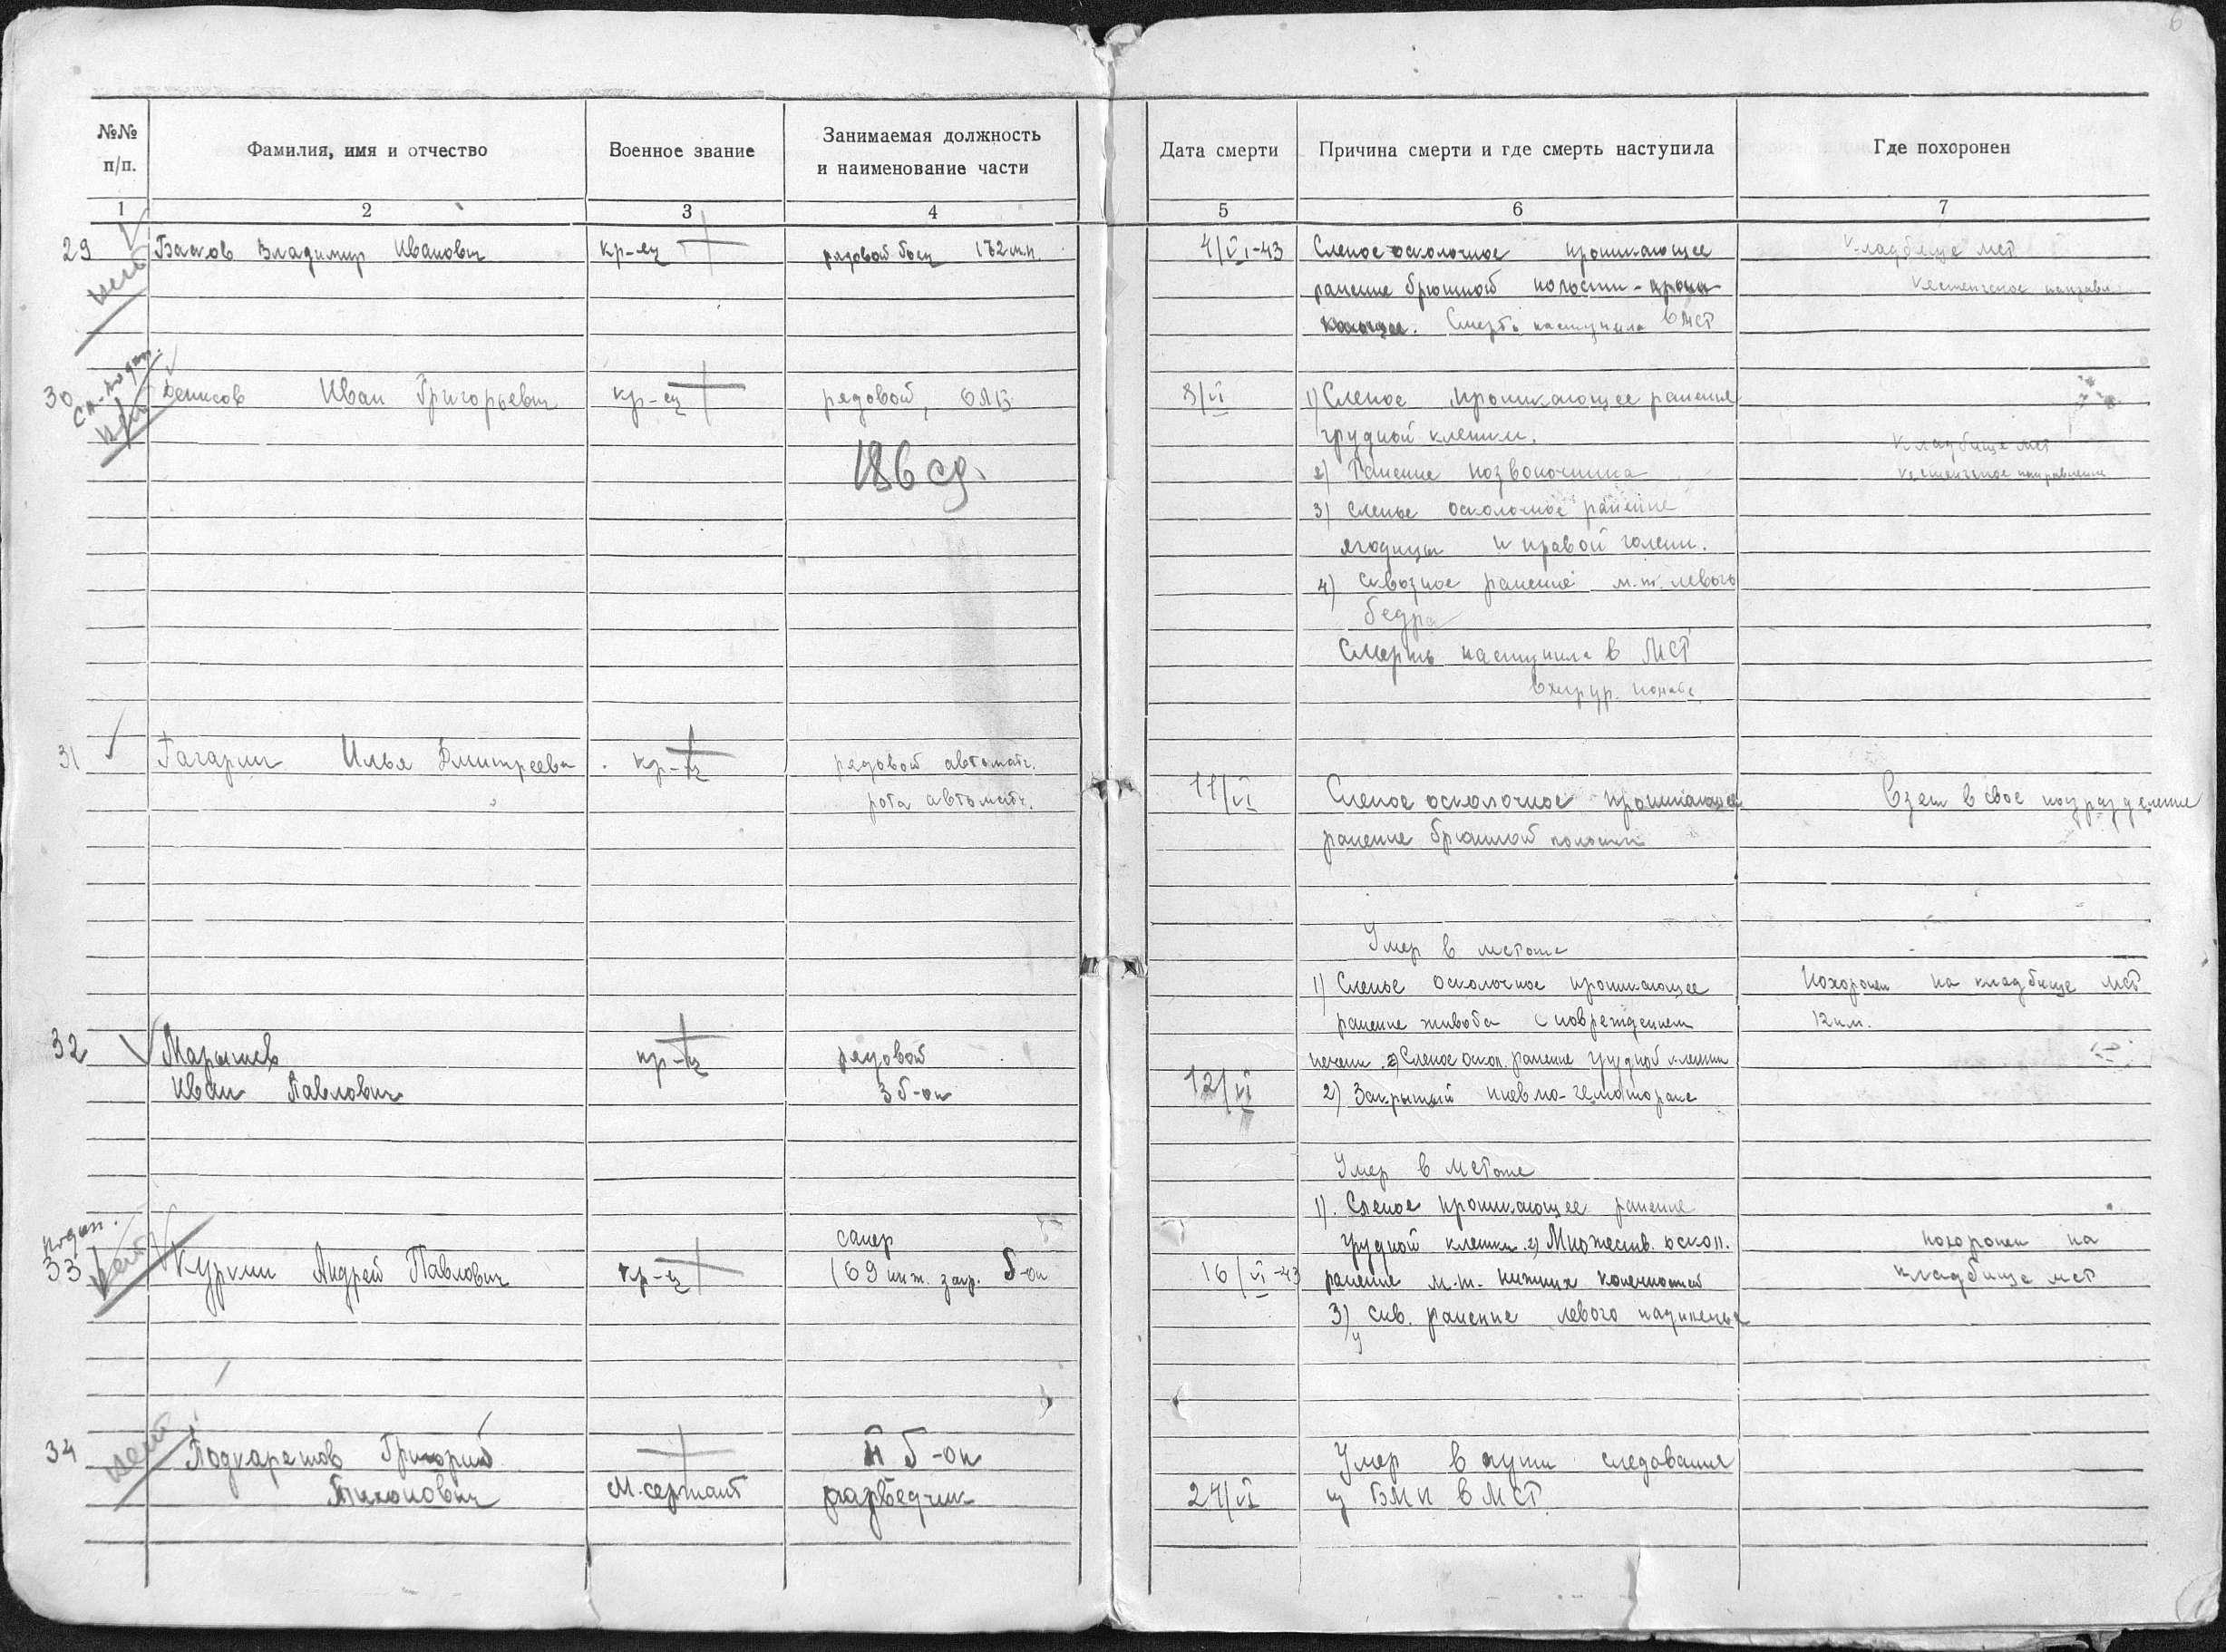 6
№№ п/п.
Фамилия, имя и отчество
Военное звание
Занимаемая должность
и наименование части
Дата смерти
Причина смерти и где смерть наступила
Где похоронен
1 2 3 4 5 6 7
29 Басков Владимир Иванович кр-ец рядовой боец 172 м.п. 4/VI-43 Слепое осколочное проникающее
нет
кладбище мст
ранение брюшной полости
Кестеньгское направл.
Смерть наступила в МСТ
30 Денисов Иван Григорьевич кр-ец рядовой, ОЛБ 8/VI 1) Слепое проникающее ранение
нет
грудной клетки.
кладбище мст
186 сд.
2) Ранение позвоночника
Кестеньгское направление
3) слепое осколочное ранение
ягодицы и правой голени.
4) сквозное ранение м.т. левого
бедра
Смерть наступила в МСТ
в хирур. палате
31 Гагарин Илья Дмитреевич кр-ец рядовой автомат.
рота автоматч.
11/VI Слепое осколочное проникающее
Взят в свое подразделение
ранение брюшной полости
Умер в мстоте
1) Слепое осколочное проникающее
Похоронен на кладбище мст
ранение живота с повреждением
12 км.
32 Марышев кр-ец рядовой
печени. 2) Слепое оскол. ранение грудной клетки
Иван Павлович 3 б-он 12/VI
2) Закрытый пневмо-гемоторакс
Умер в мстоте
1). Слепое проникающее ранение
подан.
сапер
грудной клетки. 2) Множеств. оскол.
похоронен на
33 Куркин Андрей Павлович кр-ец 169 инж. загр. б-он 16/VI-43 ранение м.т. нижних конечностей
нет
кладбище мст
3) скв. ранение левого надплечья
34 Подкаретов Григорий II б-он
нет
Умер в пути следования
Тихонович М. сержант разведчик 24/VI
из БМП в МСТ